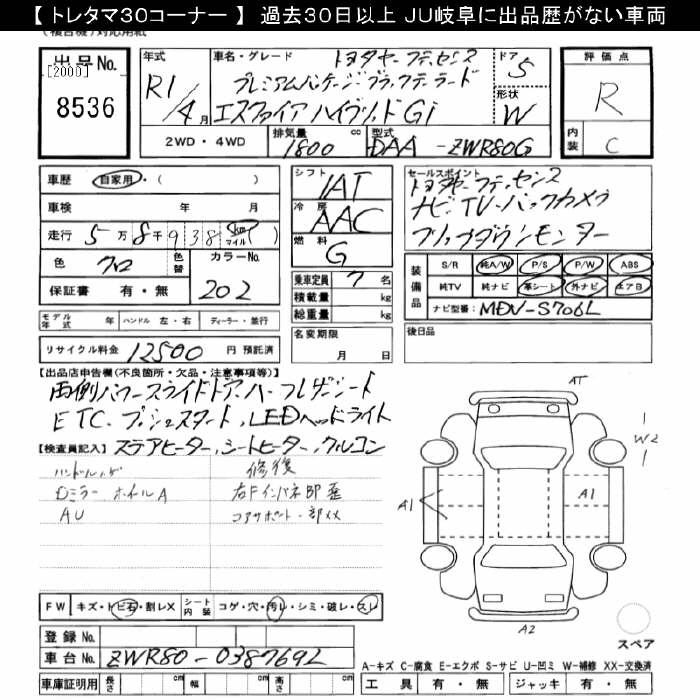 【 トレタマ30コーナー 】 過去30日以上 JU岐阜に出品歴がない車両
出品No.
[2000]
8536
年式
R1/4月
車名・グレード
トヨタヤーフティセンス
プレミアムパッケージブラックテーラード
エスクァイア ハイブリッド Gi
ドア
5
形状
W
評価点
R
内装
C
2WD・4WD
排気量
1800 cc
型式
DAA -ZWR80G
車歴 自家用・( )
車検 年 月
走行 5万8千938 km マイル( )
色 クロ 色替 カラーNo.
202
保証書 有・無
モデル年式 年 ハンドル 左・右 ディーラー・並行
リサイクル料金 12500 円 預託済
シフト
IAT
冷房
AAC
燃料
G
乗車定員 7 名
積載量 kg
総重量 kg
名変期限
月 日
セールスポイント
トヨタヤーフティセンス
ナビ・TV・バックカメラ
フリップダウンモニター
装備品
S/R 純A/W P/S P/W ABS
純TV 純ナビ 革シート 外ナビ エアB
ナビ型番( MDV-S706L
後日品
【出品店申告欄(不良箇所・欠品・注意事項等)】
両側パワースライドドア、ハーフレザーシート
ETC、プッシュスタート、LEDヘッドライト
【検査員記入】 ステアヒーター、シートヒーター、クルコン
ハンドルスレ 修復
Dミラー ホイールA 右Fインパネ部歪
AU コアサポート・部XX
AT
W2
A1
A1
A2
スペア
FW キズ・トビ石・割レX シート内装 コゲ・穴・汚レ・シミ・破レ・スレ
登録No.
車台No. ZWR80-0387692
車庫証明用 長さ cm 幅 cm 高さ cm
A-キズ C-腐食 E-エクボ S-サビ U-凹ミ W-補修 XX-交換済
工具 有・無 ジャッキ 有・無